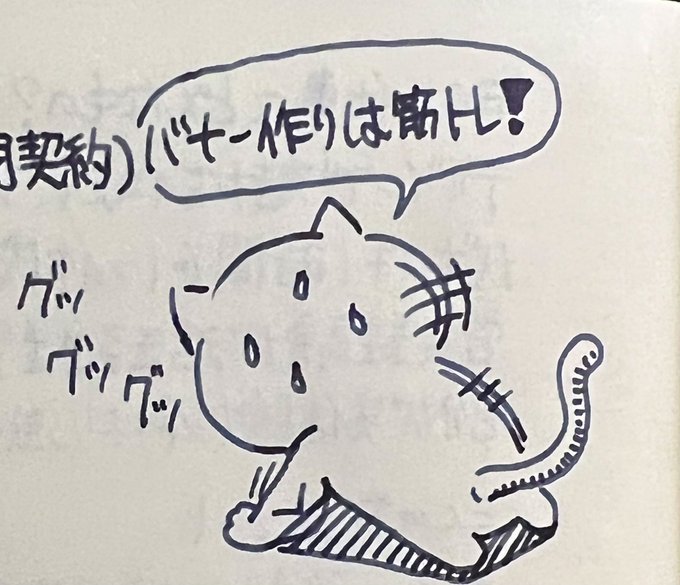 バナー作りは筋トレ!
契約)
グッ
グッ
グッ